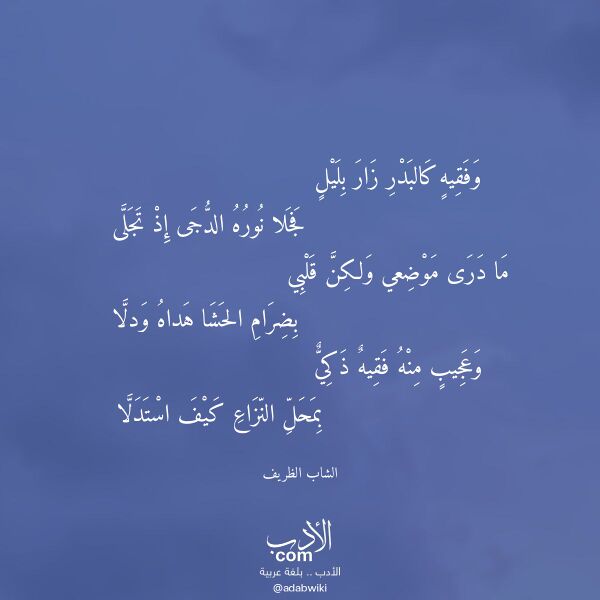 وَفَقِيهٍ كَالبَدْرِ زَارَ بِلَيْلٍ
فَجَلا نُورُهُ الدُّجَى إِذْ تَجَلَّى
مَا دَرَى مَوْضِعي وَلكِنَّ قَلْبِي
بِضِرَامِ الحَشَا هَداهُ وَدلَّا
وَعَجِيبٍ مِنْهُ فَقِيهٌ ذَكِيٌّ
بِمَحَلِّ النّزَاعِ كَيْفَ اسْتَدَلَّا
الشاب الظريف
الأدب
com
الأدب .. بلغة عربية
@adabwiki